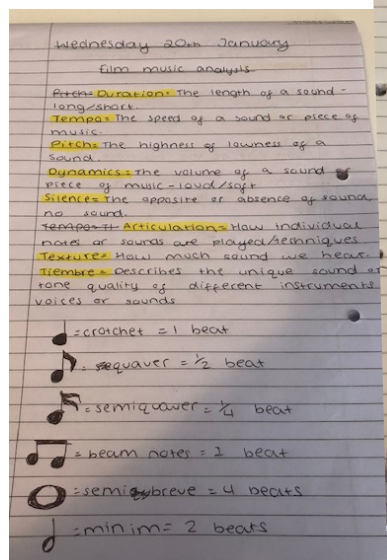 Wednesday 20th January
film music analysis
Pitch= Duration= The length of a sound -
long/short.
Tempo= The speed of a sound or piece of
music.
Pitch= The highness of lowness of a
sound.
Dynamics= The volume of a sound or
piece of music - loud/soft
Silence= The opposite or absence of sound,
no sound.
Tempo= Ti Articulation= How individual
notes or sounds are played/techniques
Texture= How much sound we hear.
Tiembre= Describes the unique sound or
tone quality of different instruments
voices or sounds
=crotchet = 1 beat
= quaver = ½ beat
=semiquaver = ¼ beat
= beam notes = 1 beat
=semibreve = 4 beats
=minim= 2 beats